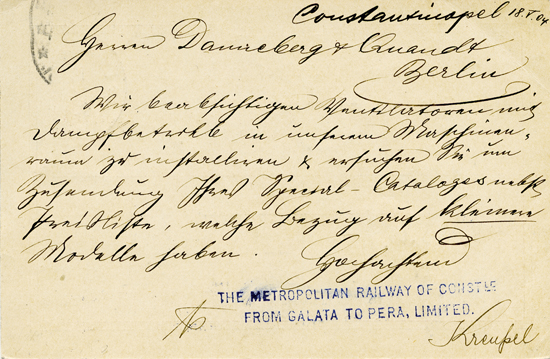 Constantinopel 18.V.04
Herren Danneberg & Quandt
Berlin
Wir beabsichtigen Ventilatoren mit
Dampfbetrieb in unserem Maschinen-
raum zu installiren & ersuchen Sie um
Zusendung Ihres Special-Cataloges nebst
Preisliste, welche Bezug auf kleinere
Modelle haben.
Hochachtend
THE METROPOLITAN RAILWAY OF CONSTLE
FROM GALATA TO PERA, LIMITED.